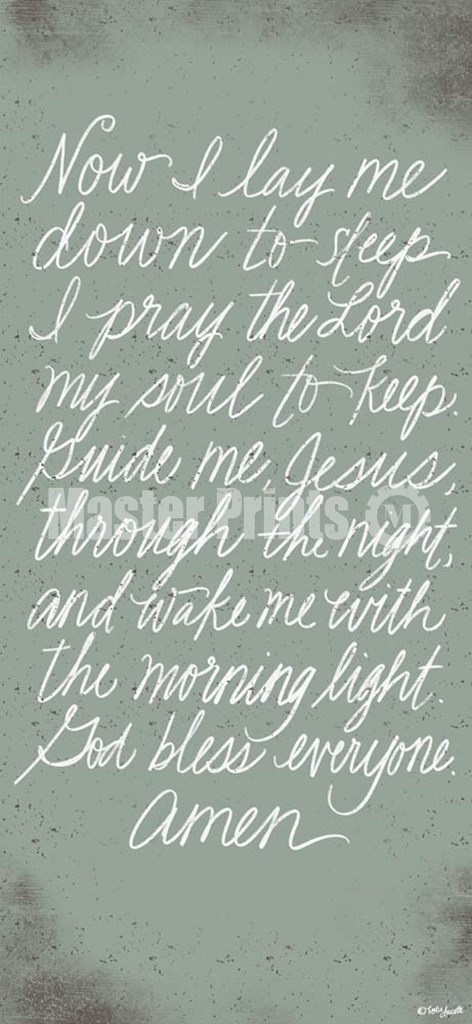 Now I lay me
down to sleep
I pray the Lord
my soul to keep.
Guide me, Jesus,
through the night,
and wake me with
the morning light.
God bless everyone.
amen
Master Prints M